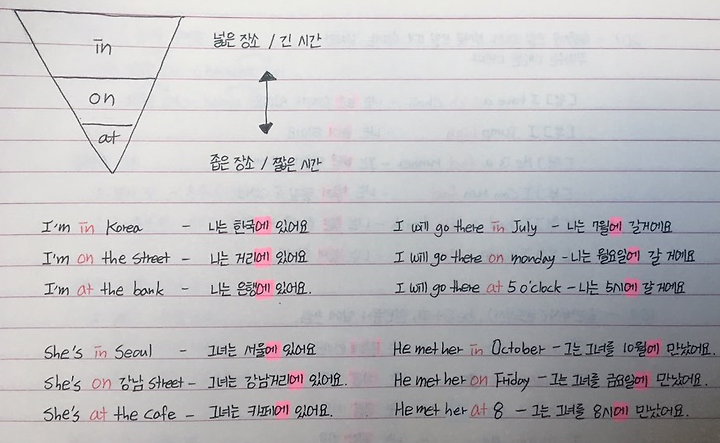 in
넓은 장소 / 긴 시간
on
at
좁은 장소 / 짧은 시간
I'm in Korea - 나는 한국에 있어요
I'm on the street - 나는 거리에 있어요.
I'm at the bank - 나는 은행에 있어요.
I will go there in July - 나는 7월에 갈거에요
I will go there on monday - 나는 월요일에 갈 거에요
I will go there at 5 o'clock - 나는 5시에 갈 거에요
She's in Seoul - 그녀는 서울에 있어요
She's on 강남 street - 그녀는 강남거리에 있어요.
She's at the cafe - 그녀는 카페에 있어요.
He met her in October - 그는 그녀를 10월에 만났어요.
He met her on Friday - 그는 그녀를 금요일에 만났어요.
He met her at 8 - 그는 그녀를 8시에 만났어요.